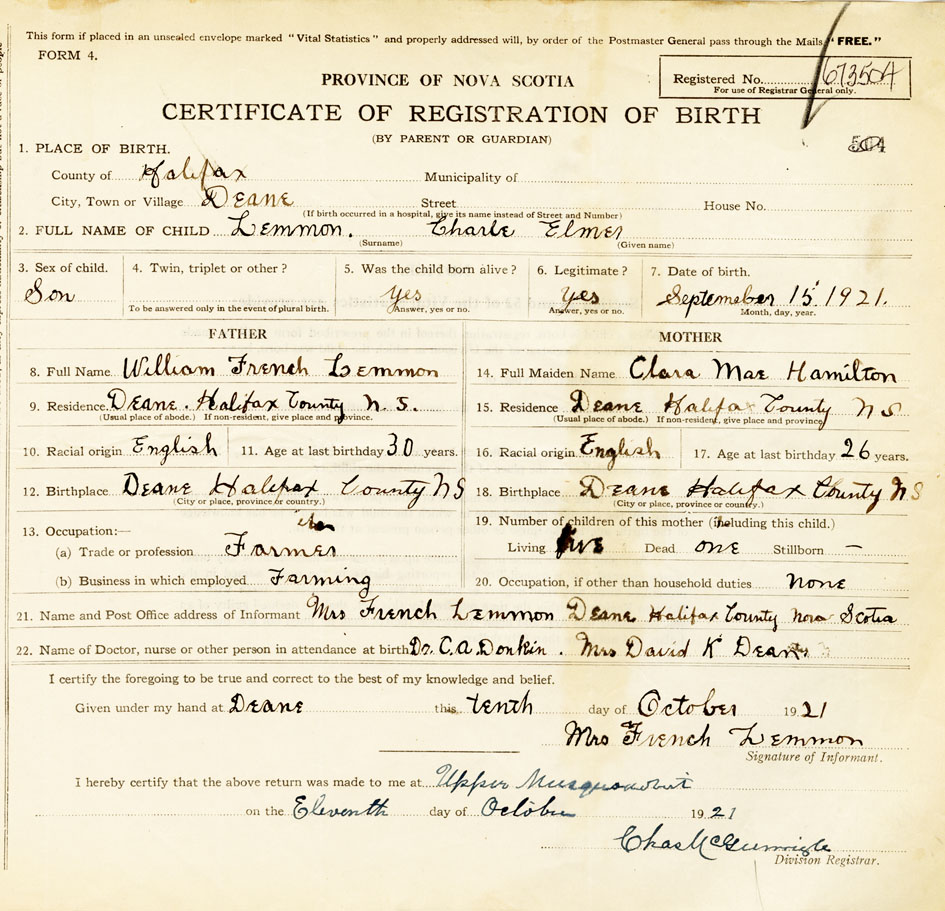 This form if placed in an unsealed envelope marked "Vital Statistics" and properly addressed will, by order of the Postmaster General pass through the Mails "FREE."
FORM 4.
PROVINCE OF NOVA SCOTIA
Registered No. 67350A
For use of Registrar General only.
CERTIFICATE OF REGISTRATION OF BIRTH
(BY PARENT OR GUARDIAN)
504
1. PLACE OF BIRTH.
County of Halifax Municipality of
City, Town or Village Deane Street House No.
(If birth occurred in a hospital, give its name instead of Street and Number)
2. FULL NAME OF CHILD Lemmon. Charle Elmer
(Surname) (Given name)
3. Sex of child. 4. Twin, triplet or other? 5. Was the child born alive? 6. Legitimate? 7. Date of birth.
Son yes yes Septemeber 15 1921.
To be answered only in the event of plural birth. Answer, yes or no. Answer, yes or no. Month, day, year.
FATHER MOTHER
8. Full Name William French Lemmon 14. Full Maiden Name Clara Mae Hamilton
9. Residence. Deane. Halifax County N.S. 15. Residence Deane Halifax County N S
(Usual place of abode.) If non-resident, give place and province. (Usual place of abode.) If non-resident, give place and province
10. Racial origin English 11. Age at last birthday 30 years. 16. Racial origin English 17. Age at last birthday 26 years.
12. Birthplace Deane Halifax County N S 18. Birthplace Deane Halifax County N S
(City or place, province or country.) (City or place, province or country.)
13. Occupation:— 19. Number of children of this mother (including this child.)
(a) Trade or profession Farmer Living five Dead one Stillborn —
(b) Business in which employed Farming 20. Occupation, if other than household duties none
21. Name and Post Office address of Informant Mrs French Lemmon Deane Halifax County Nova Scotia
22. Name of Doctor, nurse or other person in attendance at birth Dr. C.A. Donkin. Mrs David K Dean
I certify the foregoing to be true and correct to the best of my knowledge and belief.
Given under my hand at Deane this tenth day of October 1921
Mrs French Lemmon
Signature of Informant.
I hereby certify that the above return was made to me at Upper Musquodobit
on the Eleventh day of October 1921
Chas
Division Registrar.